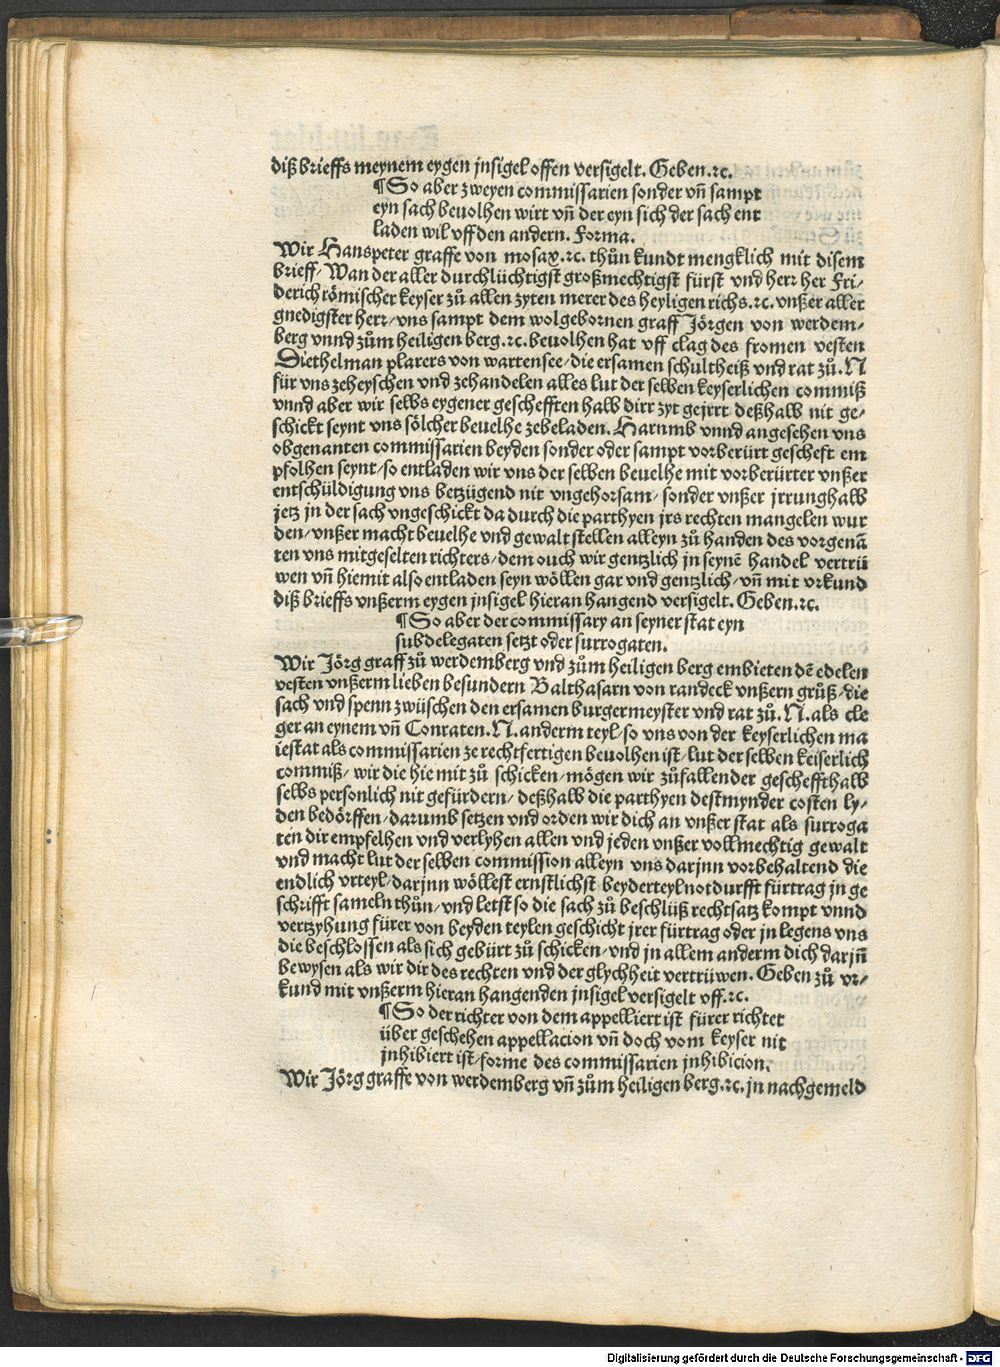 diß brieffs meynem eygen jnsigel offen versigelt. Geben.⁊c.
¶ So aber zweyen commissarien sonder vn̄ sampt
eyn sach beuolhen wirt vn̄ der eyn sich der sach ent
laden wil vff den andern. Forma.
Wir Hanspeter graffe von mosax.⁊c. thůn kundt mengklich mit disem
brieff/ Wan der aller durchlüchtigst großmechtigst fürst vnd herr her Fri/
derich römischer keyser zů allen zyten merer des heyligen richs.⁊c. vnßer aller
gnedigster herr/ vns sampt dem wolgebornen graff Jörgen von werdem/
berg vnnd zům heiligen berg.⁊c. beuolhen hat vff clag des fromen vesten
Diethelman plarers von wartensee/ die ersamen schultheiß vnd rat zů. N
für vns zeheyschen vnd zehandelen alles lut der selben keyserlichen commiß
vnnd aber wir selbs eygener geschefften halb dirr zyt gejrrt deßhalb nit ge/
schickt seynt vns sölcher beuelhe zebeladen. Harumb vnnd angesehen vns
obgenanten commissarien beyden sonder oder sampt vorberürt gescheft em
pfolhen seynt/ so entladen wir vns der selben beuelhe mit vorberürter vnßer
entschüldigung vns betzügend nit vngehorsam/ sonder vnßer jrrunghalb
jetz in der sach vngeschickt da durch die parthyen jrs rechten mangelen wur
den/ vnßer macht beuelhe vnd gewalt stellen alleyn zů handen des vorgenā
ten vns mitgeselten richters/ dem ouch wir gentzlich jn seynē handel vertrü
wen vn̄ hiemit also entladen seyn wöllen gar vnd gentzlich/ vn̄ mit vrkund
diß brieffs vnßerm eygen jnsigel hieran hangend versigelt. Geben.⁊c.
¶ So aber der commissary an seyner stat eyn
subdelegaten setzt oder surrogaten.
Wir Jörg graff zů werdemberg vnd zům heiligen berg embieten dē edelen
vesten vnßerm lieben besundern Balthasarn von randeck vnßern grůß/ die
sach vnd spenn zwüschen den ersamen burgermeyster vnd rat zů. N. als cle
ger an eynem vn̄ Conraten. N. anderm teyl/ so vns von der keyserlichen ma
iestat als commissarien ze rechtfertigen beuolhen ist/ lut der selben keiserlich
commiß/ wir die hie mit zů schicken/ mögen wir zůfallender gescheffthalb
selbs personlich nit gefürdern/ deßhalb die parthyen destmynder costen ly/
den bedörffen/ darumb setzen vnd orden wir dich an vnßer stat als surroga
ten dir empfelhen vnd verlyhen allen vnd jeden vnßer vollmechtig gewalt
vnd macht lut der selben commission alleyn vns darjnn vorbehaltend die
endlich vrteyl/ darjnn wöllest ernstlichst beyderteyl notdurfft fürtrag jn ge
schrifft sameln thůn/ vnd letst so die sach zů beschlüß rechtsatz kompt vnnd
vertzyhung fürer von beyden teylen geschicht jrer fürtrag oder jn legens vns
die beschlossen als sich gebürt zů schicken/ vnd jn allem anderm dich darjn̄
bewysen als wir dir des rechten vnd der glychheit vertrüwen. Geben zů vr/
kund mit vnßerm hieran hangenden jnsigel versigelt vff.⁊c.
¶ So der richter von dem appelliert ist fürer richtet
über geschehen appellacion vn̄ doch vom keyser nit
jnhibiert ist/ forme des commissarien jnhibicion.
Wir Jörg graffe von werdemberg vn̄ zům heiligen berg.⁊c. jn nachgemeld
Digitalisierung gefördert durch die Deutsche Forschungsgemeinschaft - DFG